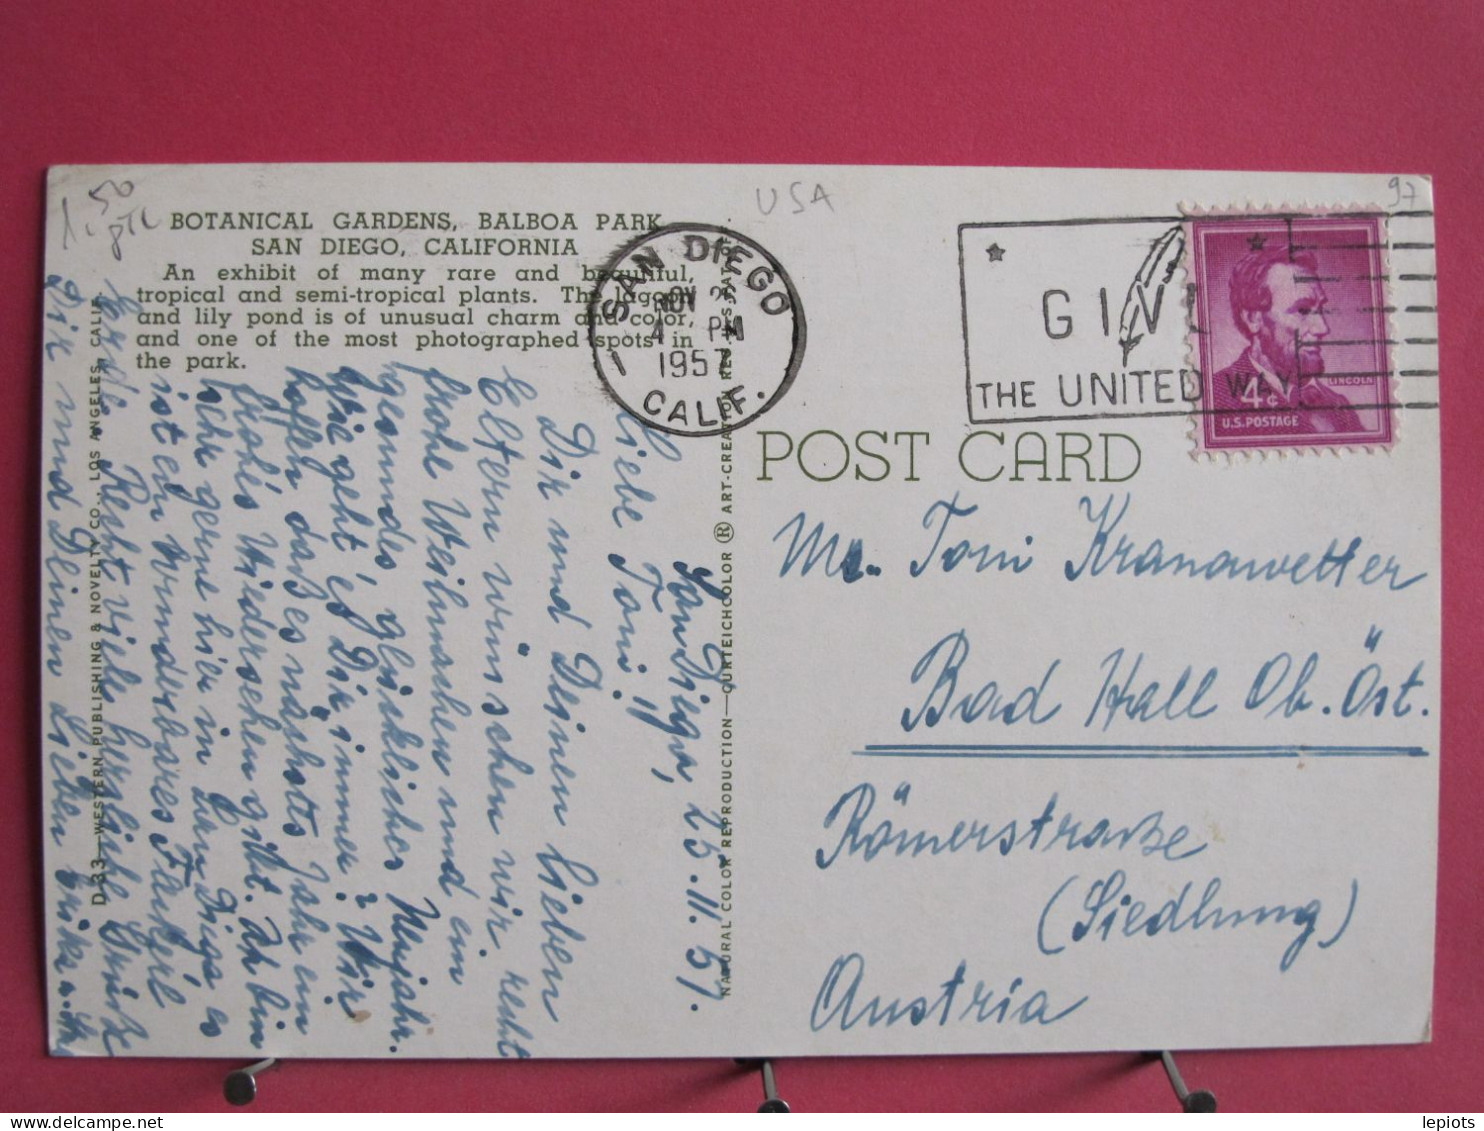 1.50
USA
97
BOTANICAL GARDENS, BALBOA PARK
SAN DIEGO, CALIFORNIA
An exhibit of many rare and beautiful,
tropical and semi-tropical plants. The lagoon
and lily pond is of unusual charm and color,
and one of the most photographed spots in
the park.
SAN DIEGO
NOV 2
4 PM
1957
CALIF.
1
GIVE
THE UNITED WAY
LINCOLN
4¢
U.S. POSTAGE
POST CARD
Toni Kranawetter
Bad Hall Ob. Öst.
Römerstraße
(Siedlung)
Austria
San Diego, 25.11.57.
Liebe Toni!
Dir und Deinen lieben
Eltern wünschen wir recht
frohe Weihnachten und ein
gesundes, glückliches Neujahr.
Wie geht es Dir immer? Wir
hoffen daß es nächstes Jahr ein
frohes Wiedersehen gibt. Ich bin
sehr gerne hier in San Diego es
ist ein wunderbares Fleckerl
Erde. Recht viele herzliche Grüße
Dir und Deinen Lieben
D-33—WESTERN PUBLISHING & NOVELTY CO., LOS ANGELES, CALIF.
NATURAL COLOR REPRODUCTION—CURTEICHCOLOR ® ART-CREATION REG. U.S. PAT. OFF.